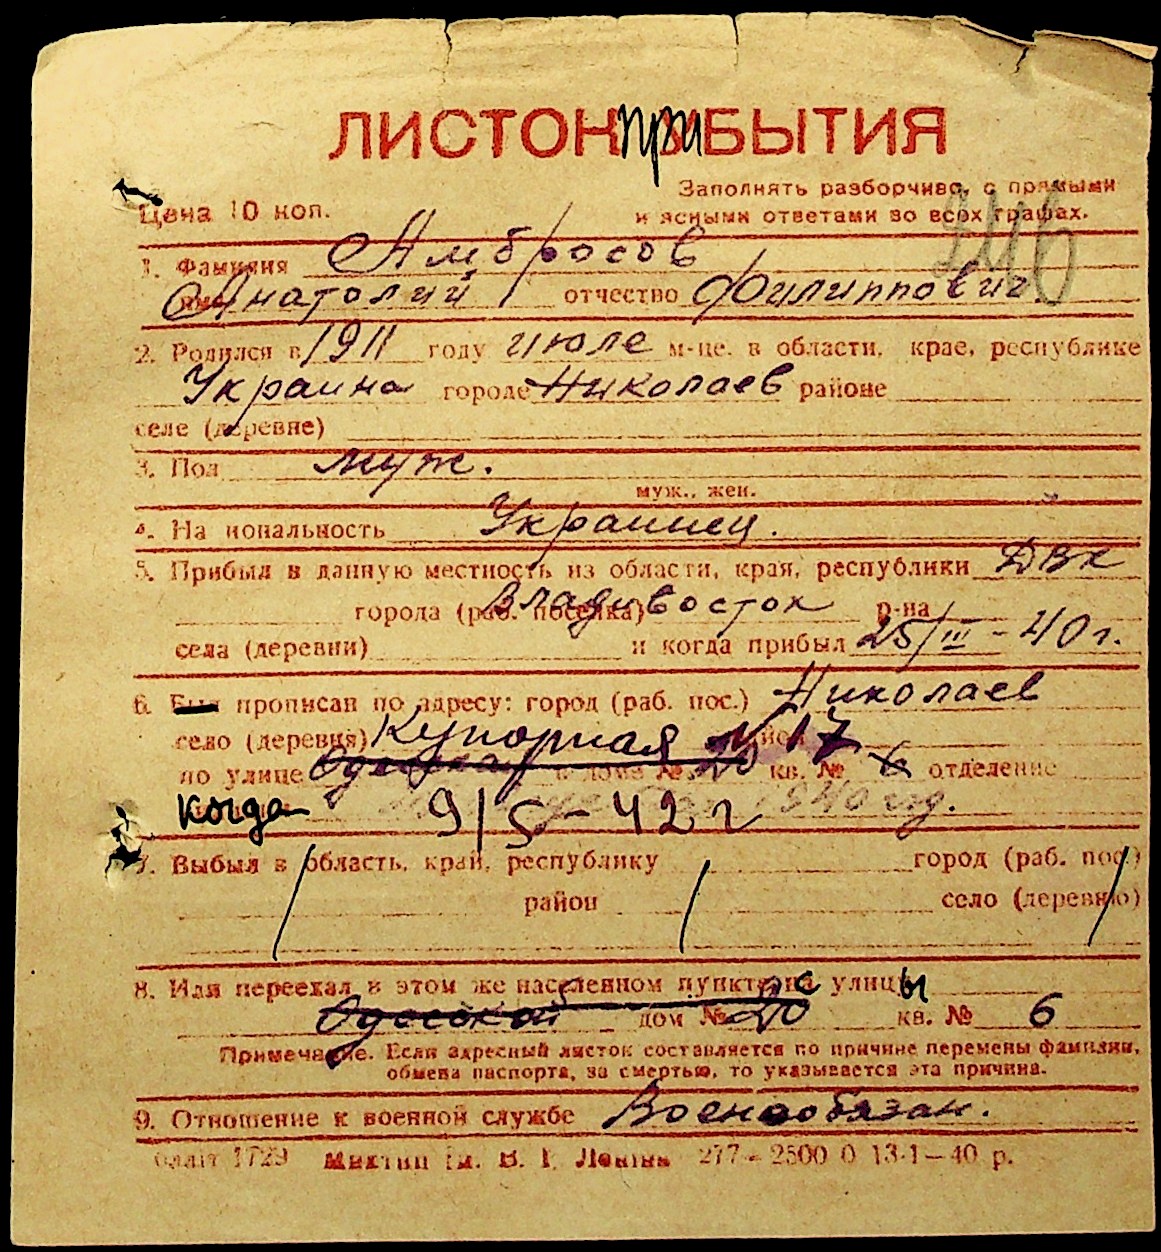 ЛИСТОК при БЫТИЯ
Заполнять разборчиво, с прямыми
Цена 10 коп. и ясными ответами во всех графах.
246
1. Фамилия Амбросов
имя Анатолий отчество Филиппович
2. Родился в 1911 году июле м-це. в области, крае, республике
Украина городе Николаев районе
селе (деревне)
3. Пол муж.
муж., жен.
4. На иональность Украинец.
5. Прибыл в данную местность из области, края, республики ДВК
города (раб. поселка) Владивосток р-на
села (деревни) и когда прибыл 25/III - 40 г.
6. Был прописан по адресу: город (раб. пос.) Николаев
село (деревня) Купорная № 17
по улице Одесская в доме № 20 кв. № 6 отделение
когда 9/5-42 г 1940 год.
7. Выбыл в область, край, республику город (раб. пос.)
район село (деревню)
8. Или переехал в этом же населенном пункте с улицы
Одесской дом № 20 кв. № 6
Примечание. Если адресный листок составляется по причине перемены фамилии,
обмена паспорта, за смертью, то указывается эта причина.
9. Отношение к военной службе Военнообязан.
1729 Миктип ім. В. І. Леніна 277 - 2500 0 13-1-40 р.